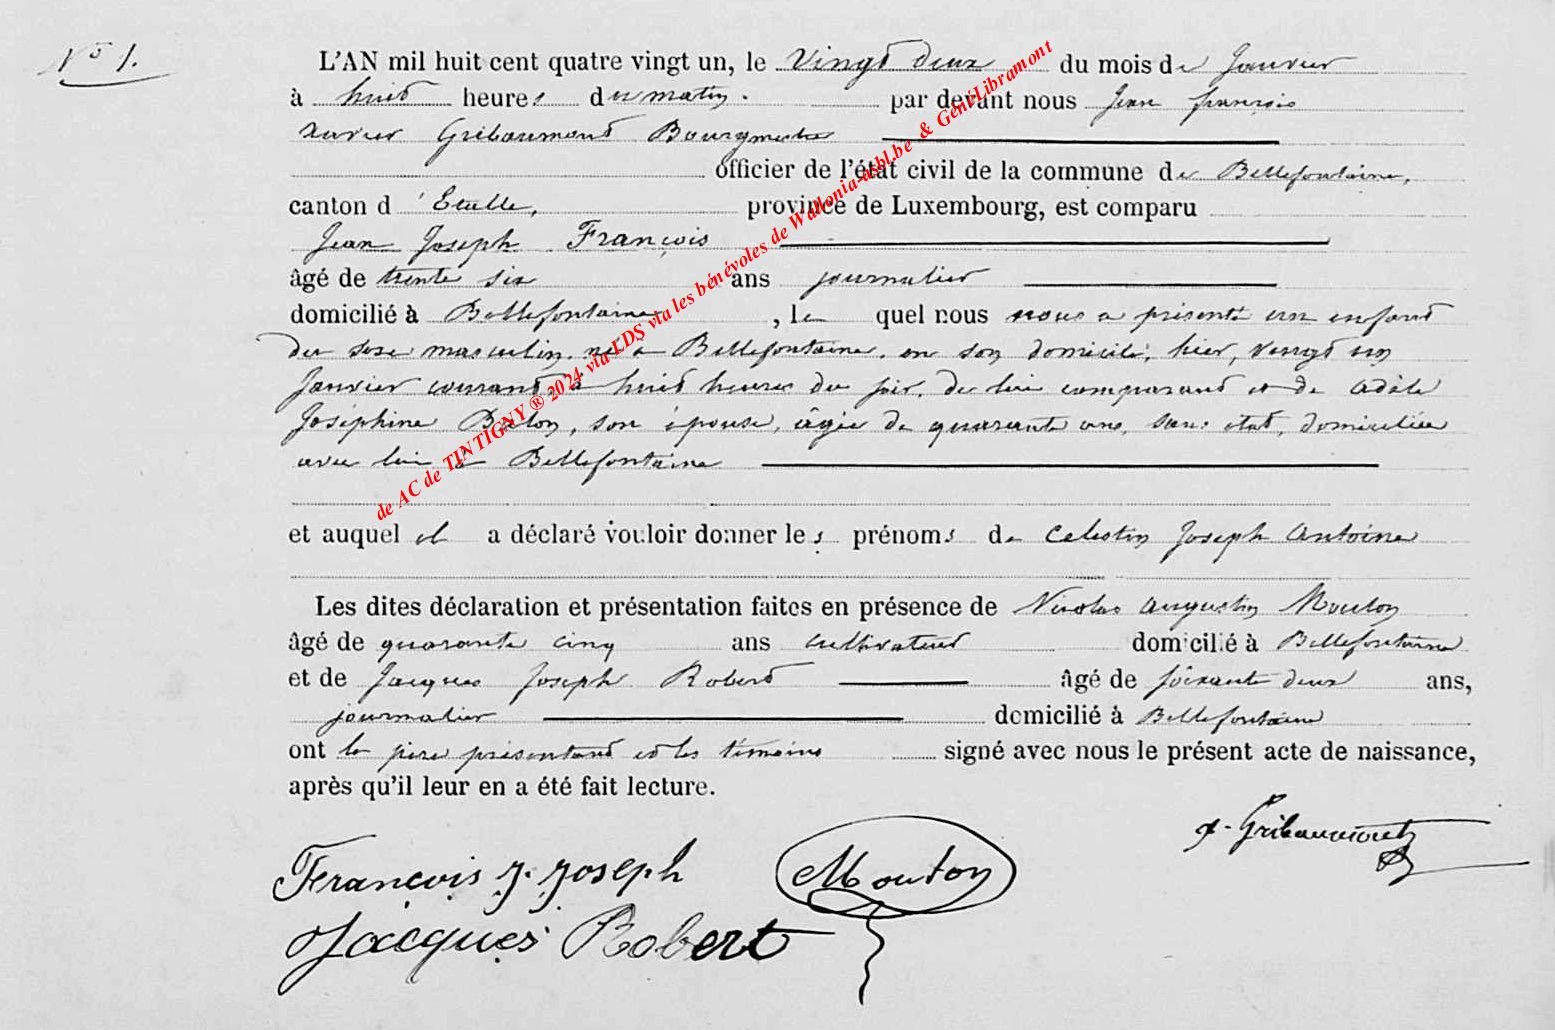 N° 1.
L'AN mil huit cent quatre vingt un, le vingt deux du mois de Janvier
à huit heures du matin. par devant nous Jean françois
Xavier Gribaumont Bourgmestre
officier de l'état civil de la commune de Bellefontaine,
canton d'Etalle, province de Luxembourg, est comparu
Jean Joseph François
âgé de trente six ans journalier
domicilié à Bellefontaine, le quel nous nous a présenté un enfant
du sexe masculin, né à Bellefontaine, en son domicile, hier, vingt un
Janvier courant, à huit heures du soir, de lui comparant et de Adèle
Joséphine Balon, son épouse, âgée de quarante ans, sans état, domiciliée
avec lui à Bellefontaine
et auquel il a déclaré vouloir donner les prénoms de Celestin Joseph Antoine
Les dites déclaration et présentation faites en présence de Nicolas Augustin Mouton
âgé de quarante cinq ans cultivateur domicilié à Bellefontaine
et de Jacques Joseph Robert âgé de soixante deux ans,
journalier domicilié à Bellefontaine
ont le père présentant et les témoins signé avec nous le présent acte de naissance,
après qu'il leur en a été fait lecture.
X. Gribaumont
François J. Joseph Mouton
Jacques Robert
de AC de TINTIGNY ® 2024 via LDS via les bénévoles de Wallonia-asbl.be & GénéLibramont